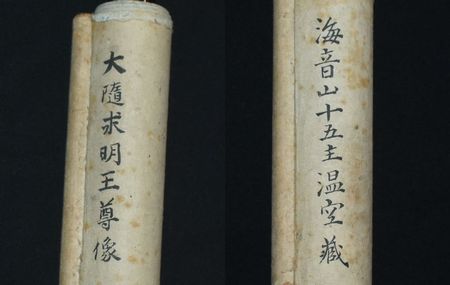 大隨求明王尊像
海音山十五主温空藏